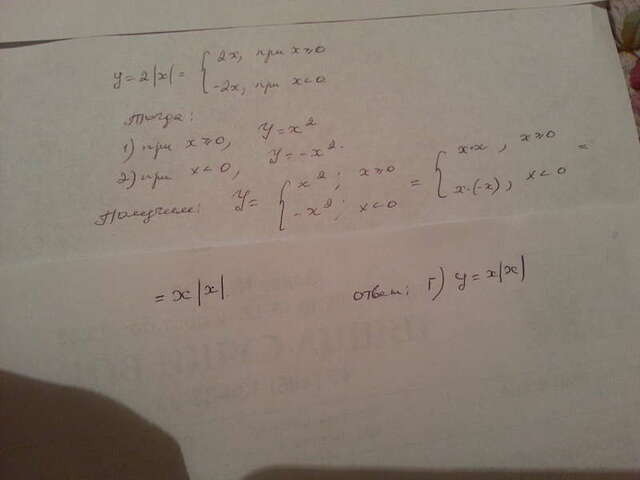 y=2|x|= { 2x, при x≥0
-2x, при x<0
Тогда:
1) при x≥0, y=x²
2) при x<0, y=-x².
Получим: y= { x²; x≥0
-x²; x<0 = { x·x, x≥0
x·(-x), x<0 =
= x|x|.
ответ: г) y=x|x|